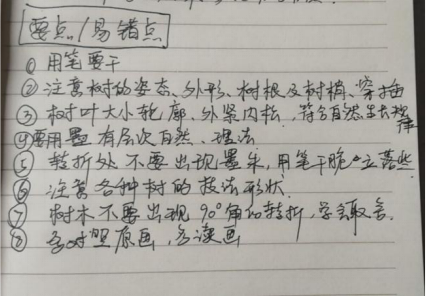 要点/易错点
① 用笔要干
② 注意树的姿态、外形、树根及树梢、穿插
③ 树叶大小轮廓、外紧内松,符合自然生长规律
④ 要用墨有层次自然、理法
⑤ 转折处不要出现墨朱,用笔干脆
⑥ 注意各种树的技法形状
⑦ 树木不要出现90°角的转折,学会取舍.
⑧ 多对照原画,多读画